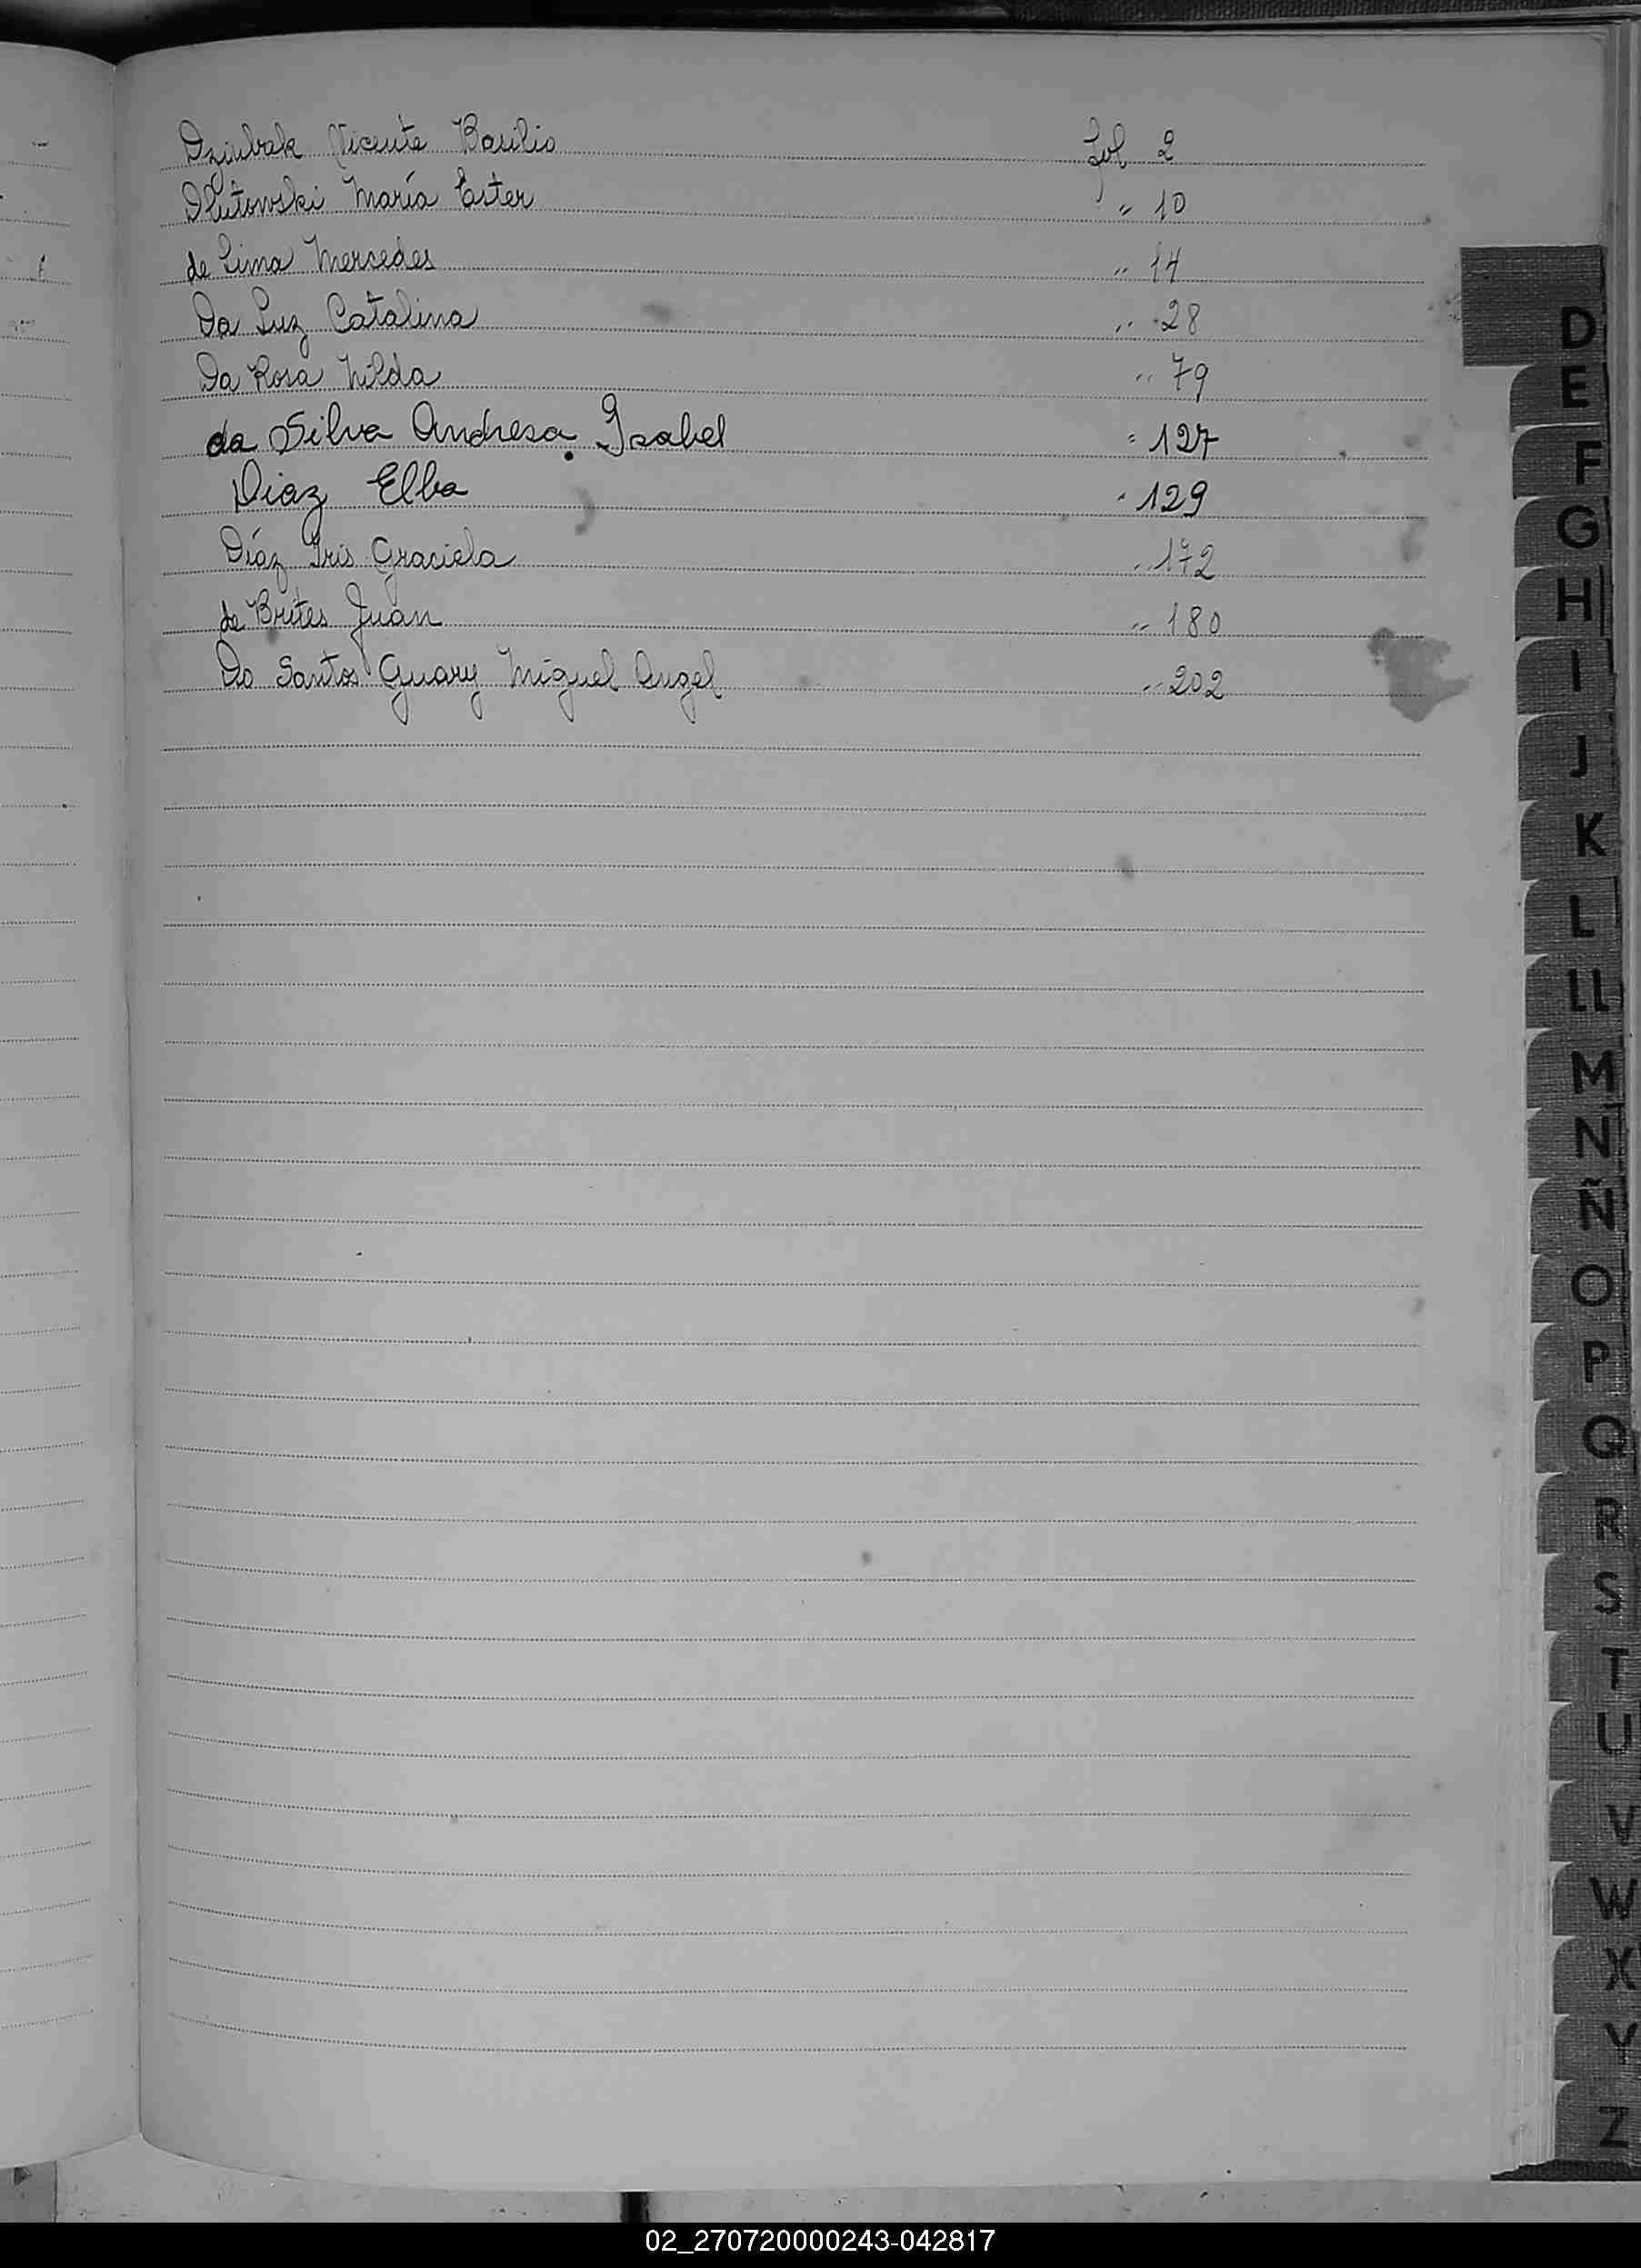 Dziubak Vicente Basilio Fol 2
Dlutowski María Ester " 10
de Lima Mercedes " 14
Da Luz Catalina " 28
Da Rosa Nilda " 79
da Silva Andresa Isabel " 127
Diaz Elba " 129
Díaz Iris Graciela " 172
de Brites Juan " 180
Do Santos Guary Miguel Angel " 202
D
E
F
G
H
I
J
K
L
LL
M
N
Ñ
O
P
Q
R
S
T
U
V
W
X
Y
Z
02_270720000243-042817